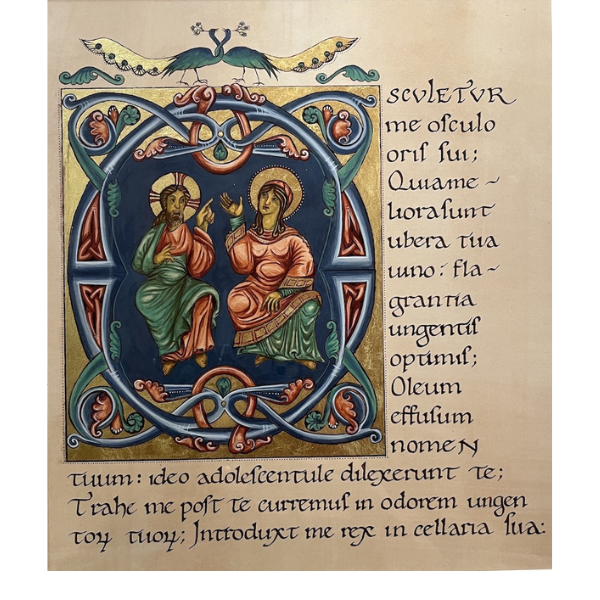 SCVLETVR
me osculo
oris sui;
Quiame ~
liorasunt
ubera tua
uino: fla-
grantia
ungentis
optimis;
Oleum
effusum
nomeN
tuum: ideo adolescentule dilexerunt te;
Trahe me post te curremus in odorem ungen
toꝝ tuoꝝ; Introduxt me rex in cellaria sua: